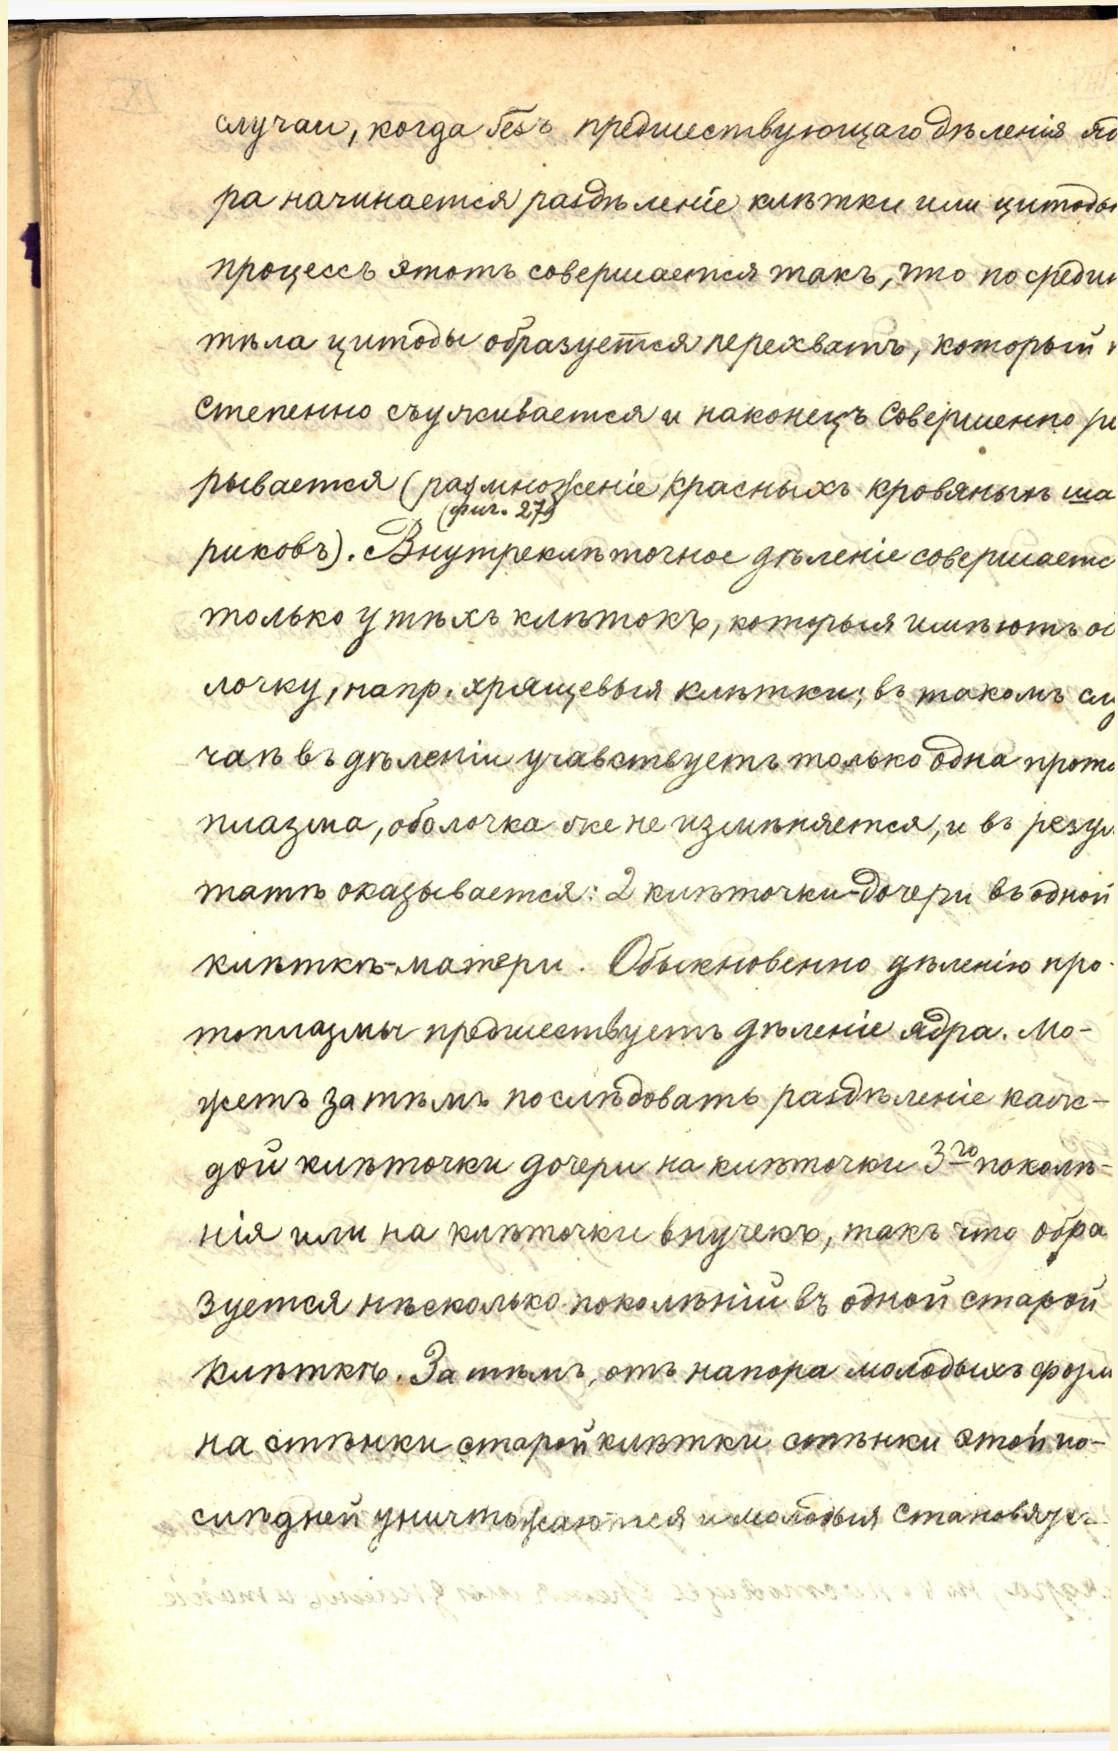 случаи, когда безъ предшествующаго дѣленія яд
ра начинается раздѣленіе клѣтки или цитоды
процессъ этотъ совершается такъ, что по среди
тѣла цитоды образуется перехватъ, который
степенно съуживается и наконецъ совершенно
рывается (размноженіе красныхъ кровяныхъ ша
(фиг. 279)
риковъ). Внутреклѣточное дѣленіе совершаетс
только у тѣхъ клѣтокъ, которыя имѣютъ об
лочку, напр. хрящевыя клѣтки; въ такомъ слу
чаѣ въ дѣленіи учавствуетъ только одна прото
плазма, оболочка же не измѣняется, и въ резул
татѣ оказывается: 2 клѣточки-дочери въ одной
клѣткѣ-матери. Обыкновенно дѣленію про-
топлазмы предшествуетъ дѣленіе ядра. Мо-
жетъ затѣмъ послѣдовать раздѣленіе каж-
дой клѣточки дочери на клѣточки 3го поколѣ-
нія или на клѣточки внучекъ, такъ что обра
зуется нѣсколько поколѣній въ одной старой
клѣткѣ. Затѣмъ, отъ напора молодыхъ форм
на стѣнки старой клѣтки стѣнки этой по-
слѣдней уничтожаются и молодыя становятся